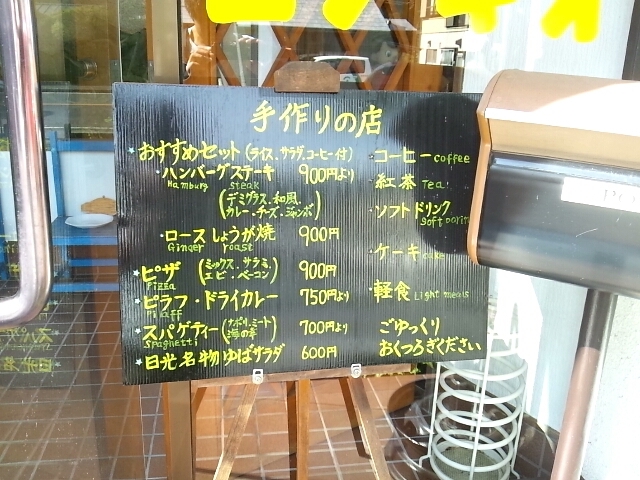 手作りの店
★おすすめセット(ライス、サラダ、コーヒー付)
・ハンバーグステーキ 900円より
Hamburg steak
(デミグラス・和風
カレー・チーズ・ジャンボ)
・ロースしょうが焼 900円
Ginger roast
★ピザ (ミックス、サラミ、エビ・ベーコン) 900円
Pizza
★ピラフ・ドライカレー 750円より
Pilaff
★スパゲティー (ナポリ、ミート 海の幸) 700円より
Spaghetti
★日光名物ゆばサラダ 600円
・コーヒー coffee
・紅茶 Tea
・ソフトドリンク
Soft Dorin
・ケーキ cake
・軽食 Light meals
ごゆっくり
おくつろぎください